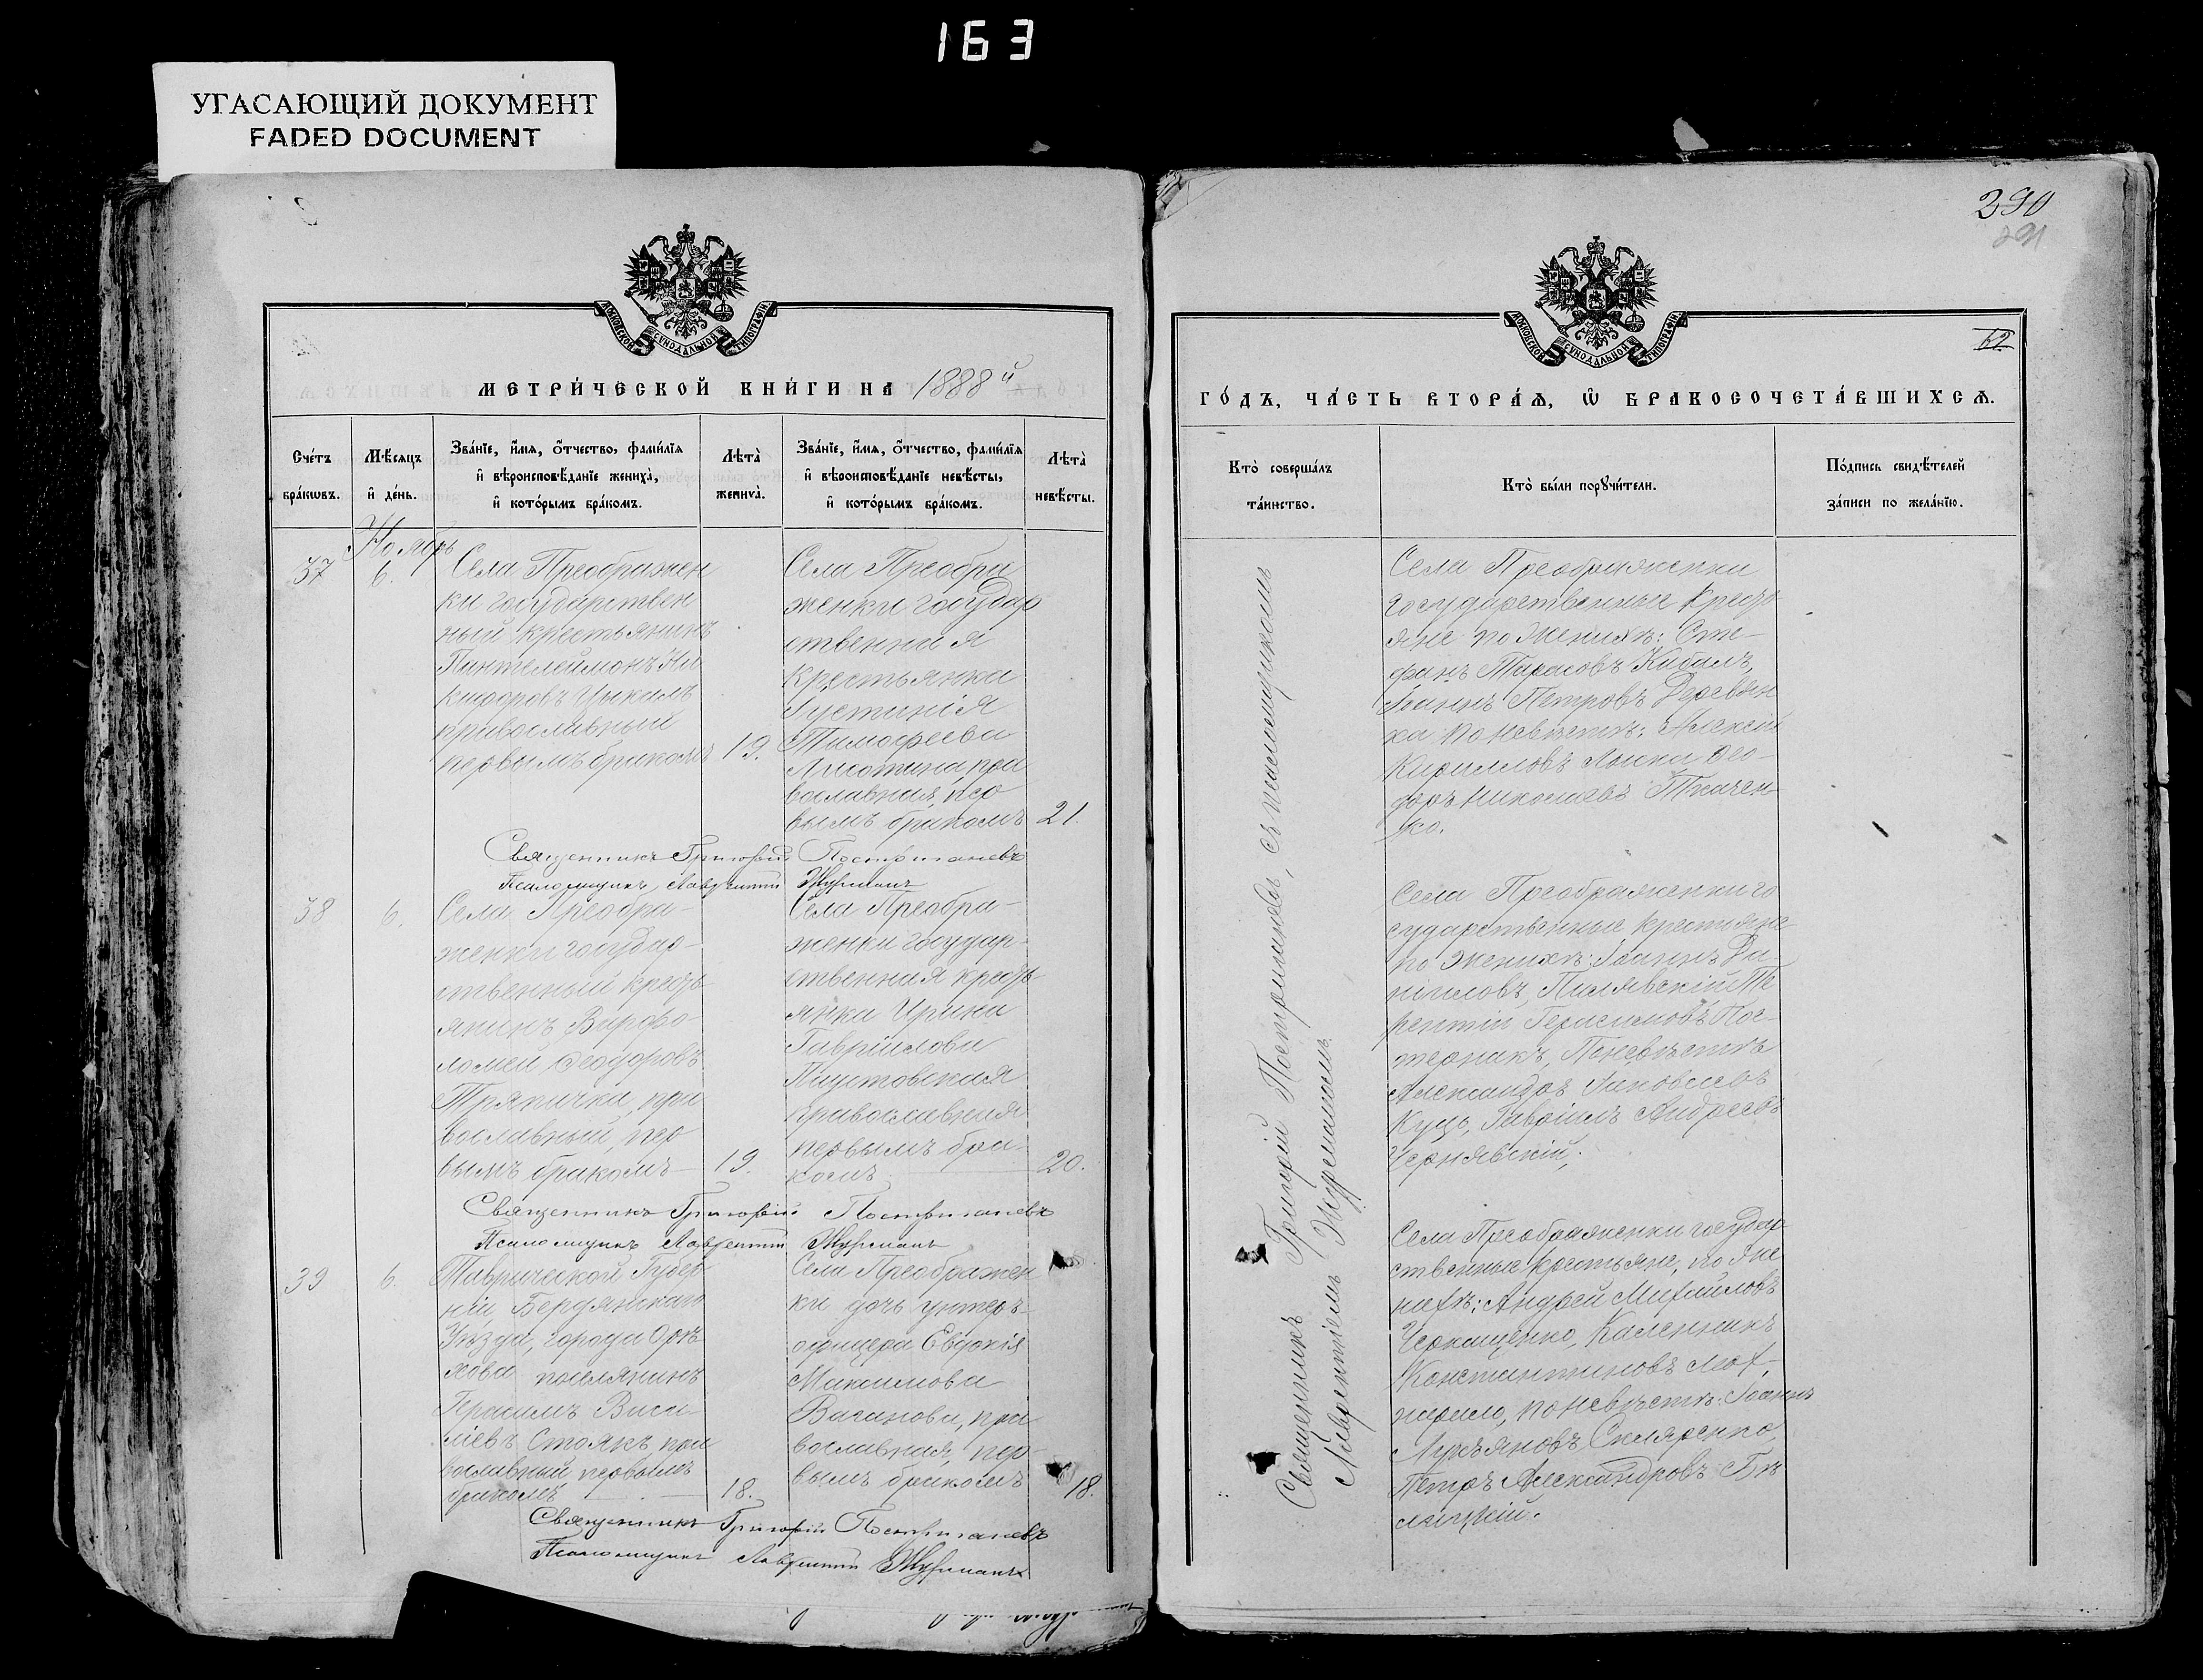 163
УГАСАЮЩИЙ ДОКУМЕНТ
FADED DOCUMENT
МОСКОВСКОЙ СѴНОДАЛЬНОЙ ТИПОГРАФІИ
МЕТРИ́ЧЕСКОЙ КНИ́ГИ НА 1888й
Сче́тъ бра́кѡвъ.
Мѣ́сяцъ и҆ де́нь.
Зва́нїе, и҆́мя, ѻ҆́тчество, фами́лїя
и҆ вѣроисповѣ́данїе жениха̀,
и҆ кото́рымъ бра́комъ.
Лѣта̀ жениха̀.
Зва́нїе, и҆́мя, ѻ҆́тчество, фами́лїя
и҆ вѣроисповѣ́данїе невѣ́сты,
и҆ кото́рымъ бра́комъ.
Лѣта̀ невѣ́сты.
Ноябрь
37
6.
Села Преображен
ки государствен
ный крестьянинъ
Пантелеймонъ Ни
кифоровъ
православный
первымъ бракомъ
19.
Села Преобра
женки государ
ственная
крестьянка
Іустинія
Тимофеева
пра
вославная, пер
вымъ бракомъ
21.
Священникъ Григорій Постригачевъ
Псаломщикъ Лаврентій Журманъ
38
6.
Села Преобра-
женки государ-
ственный кресть
янинъ Варфо-
ломей Ѳеодоровъ
Тряпичка, пра
вославный, пер
вымъ бракомъ
19.
Села Преобра-
женки государ-
ственная кресть
янка Ирина
Гавріилова
Паустовская
православная
первымъ бра-
комъ
20.
Священникъ Григорій Постригачевъ
Псаломщикъ Лаврентій Журманъ
39
6.
Таврической Губер
ніи, Бердянскаго
Уѣзда, города Орѣ
хова поселянинъ
Герасимъ Васи-
ліевъ Стоякъ, пра
вославный первымъ
бракомъ
18.
Села Преображен
ки дочь унтеръ-
офицера Евдокія
Максимова
пра
вославная, пер-
вымъ бракомъ
18.
Священникъ Григорій Постригачевъ
Псаломщикъ Лаврентій Журманъ
290
291
62
МОСКОВСКОЙ СѴНОДАЛЬНОЙ ТИПОГРАФІИ
ГО́ДЪ, ЧА́СТЬ ВТОРА́Ѧ, Ѡ҆ БРАКОСОЧЕТА́ВШИХСѦ.
Кто̀ соверша́лъ
та́инство.
Кто̀ бы́ли порꙋчи́тели.
По́дпись свидѣ́телей
за́писи по жела́нїю.
Священникъ Григорій Постригачевъ, съ псаломщикомъ
Лаврентіемъ Журманомъ
Села Преображенки
государственные кресть
яне по женихѣ: Сте-
фанъ Тарасовъ
Іоаннъ Петровъ Деревян
ха по невѣстѣ: Алексѣй
Кирилловъ Ѳео-
доръ Николаевъ Ткачен
ко.
Села Преображенки го
сударственные крестьяне
по женихѣ: Іоаннъ Да-
ніиловъ, Пилявскій Те
рентій Герасимовъ
По невѣстѣ
Александръ
Куць, Гавріилъ Андреевъ
Чернявскій,
Села Преображенки государ
ственные крестьяне, по же
нихѣ: Андрей Михайловъ
Каленикъ
Константиновъ
по невѣстѣ: Іоаннъ
Лукъяновъ Скляренко,
Петръ Александровъ